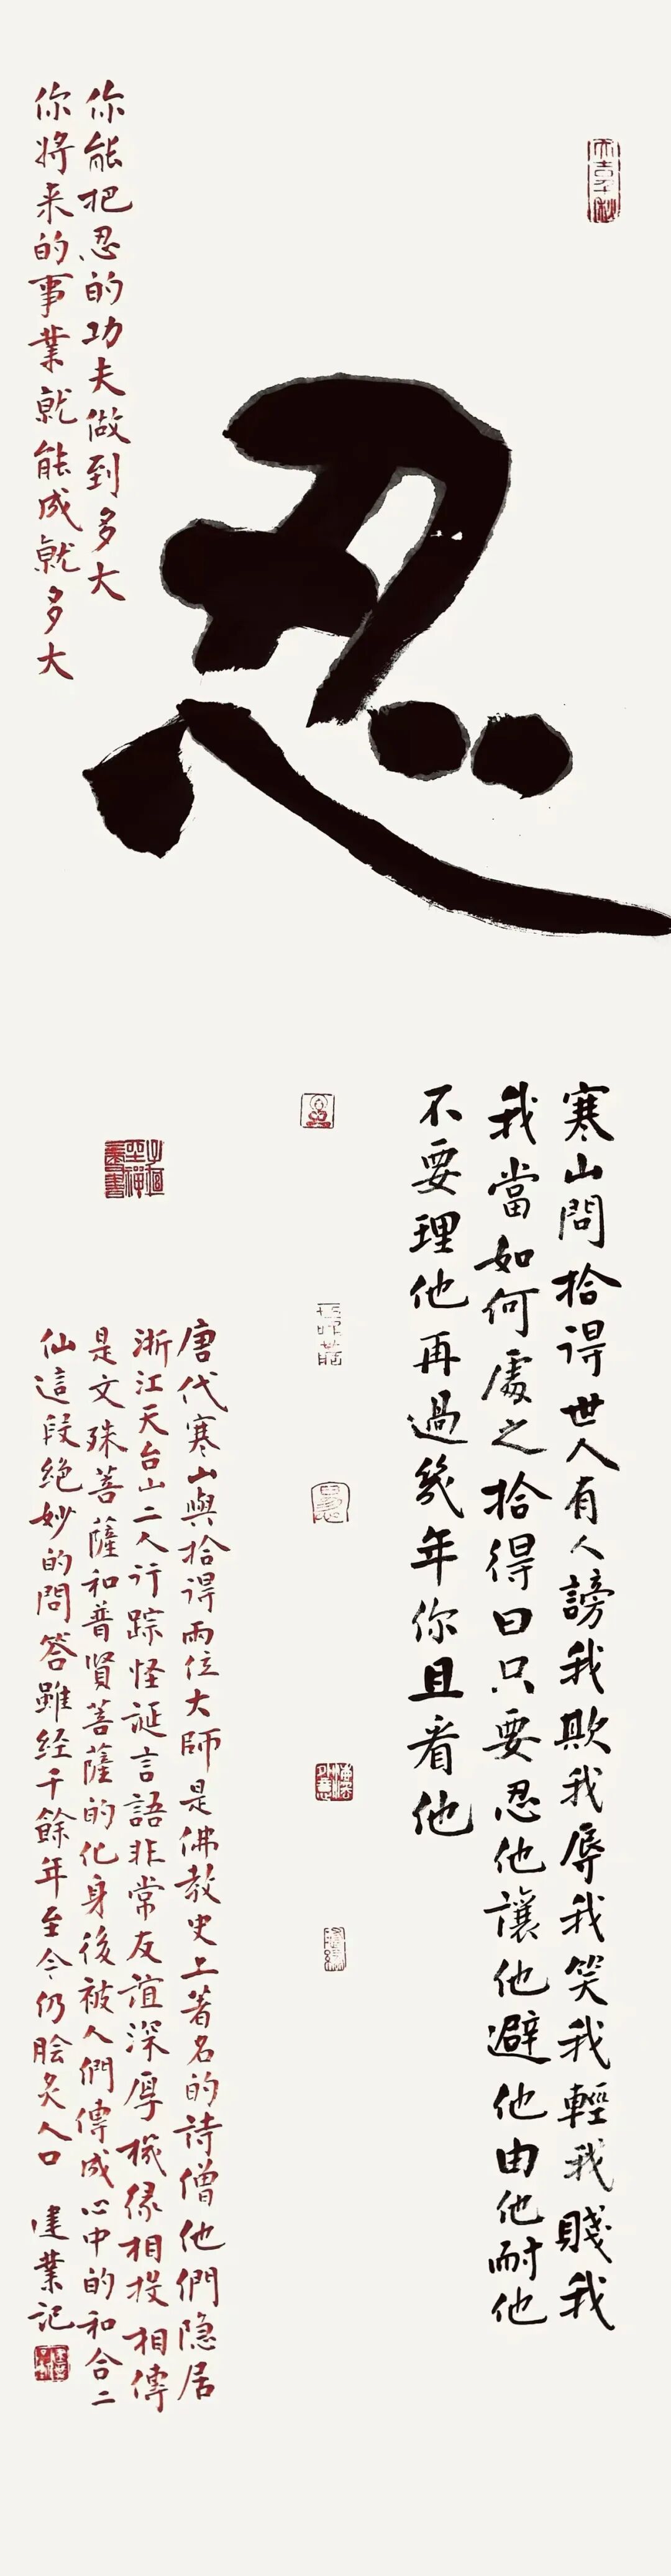 忍
你能把忍的功夫做到多大
你将来的事業就能成就多大
寒山問拾得世人有人謗我欺我辱我笑我輕我賤我
我當如何處之拾得曰只要忍他讓他避他由他耐他
不要理他再過幾年你且看他
唐代寒山與拾得兩位大師是佛教史上著名的詩僧他們隐居
浙江天台山二人行踪怪诞言語非常友谊深厚機缘相投相傳
是文殊菩薩和普賢菩薩的化身後被人們傳成心中的和合二
仙這段绝妙的問答雖经千餘年至今仍脍炙人口 建業記